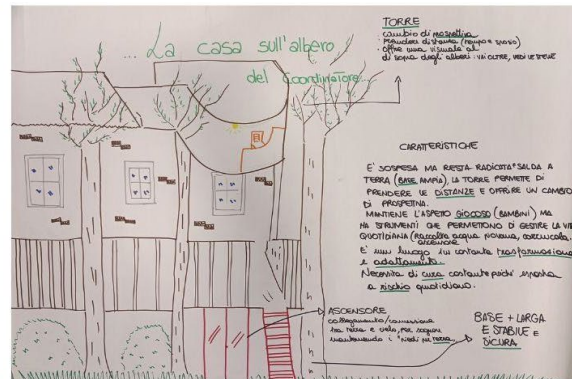 ... La casa sull'albero
del coordinatore...
TORRE
cambio di prospettiva
prendersi distanza (tempo e spazio)
offre una visuale al
di sopra degli alberi
CARATTERISTICHE
E' SOSPESA MA RESTA RADICATA E SALDA A
TERRA (BASE AMPIA), LA TORRE PERMETE DI
PRENDERE LE DISTANZE E OFFRIRE UN CAMBIO
DI PROSPETIVA.
MANTIENE L'ASPETTO GIOCOSO (BAMBINI) MA
HA STRUMENTI CHE PERMETTONO DI GESTIRE LA VITA
QUOTIDIANA (raccolta acqua piovana,
ascensore
E' un luogo in costante trasformazione
e adattamento.
Necessita di cura costante perché esposta
a rischio quotidiano.
ASCENSORE
collegamento/connessione
tra terra e cielo, per sognare
mantenendo i "piedi per terra"
BASE + LARGA
E STABILE E
SICURA